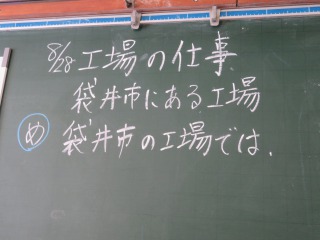 8/28 工場の仕事
袋井市にある工場
め 袋井市の工場では.